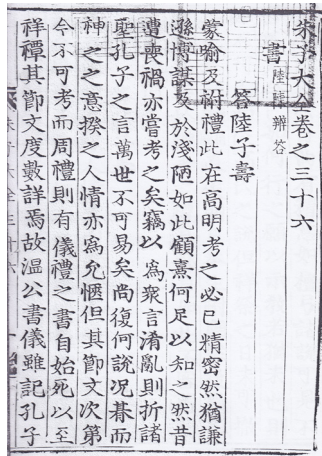 朱子大全卷之三十六
書 陸陳辨答
答陸子壽
蒙喻及祔禮此在高明考之必已精密然猶謙
遜博謀及於淺陋如此顧熹何足以知之然昔
遭喪禍亦嘗考之矣竊以爲衆言淆亂則折諸
聖孔子之言萬世不可易矣尚復何說況朞而
神之之意揆之人情亦爲允愜但其節文次第
今不可考而周禮則有儀禮之書自始死以至
祥禫其節文度數詳焉故温公書儀雖記孔子